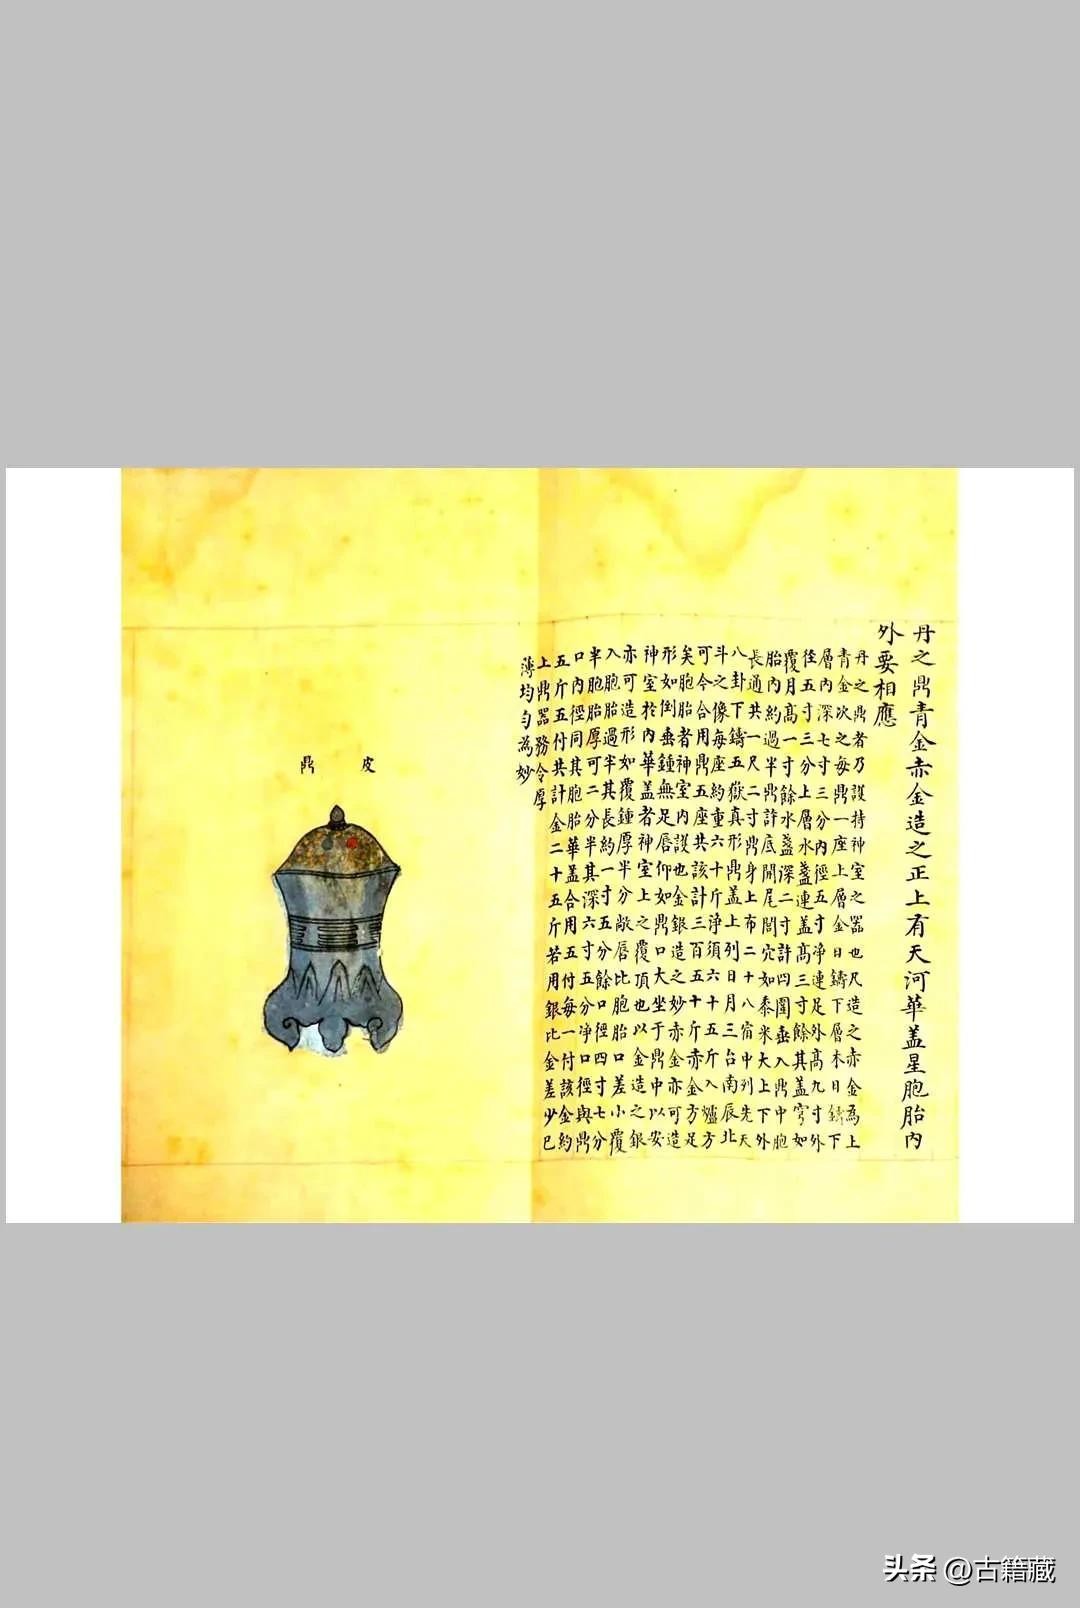 丹之鼎青金赤金造之正上有天河華盖星胞胎內
外要相應
丹之鼎者乃設持神室之器也凡造之赤金為上
青金次之每鼎一座上層金日鑄下層木日鑄下
層內深七寸三分內徑五寸淨連足外高九寸外
徑五寸三分上層水盞連盖高三寸餘其盖穹如
覆月高一寸餘水盞深二寸許四圍垂入鼎中胞
胎內約過半鼎許底開尾閭穴如黍米大上下外
長通共一尺二寸鼎身上布二十八宿中列先天
八卦下鑄五嶽真形鼎盖上列日月三台南辰北
斗之像每座約重六十斤淨須六十五斤入爐方
可令合用鼎五座共該計三百五十斤赤金方足
矣胞胎者神室內設也金銀造之妙赤金亦可造
形如倒垂鍾無足唇仰如鼎口大坐于鼎中以安
神室於內華盖者神室上之覆頂也以金造之銀
亦可造形如覆鍾厚半分敞唇比胞胎口差小覆
入胞胎過半其長約一寸五分餘口徑四寸七分
半胞胎厚可二分半其深六寸五分淨口徑與鼎
口內徑同其胞胎華盖合用五付每一付該金約
五斤五付共計金二十五斤若用銀比金差少已
上鼎器務令厚
薄均勻為妙
皮鼎
头条 @古籍藏